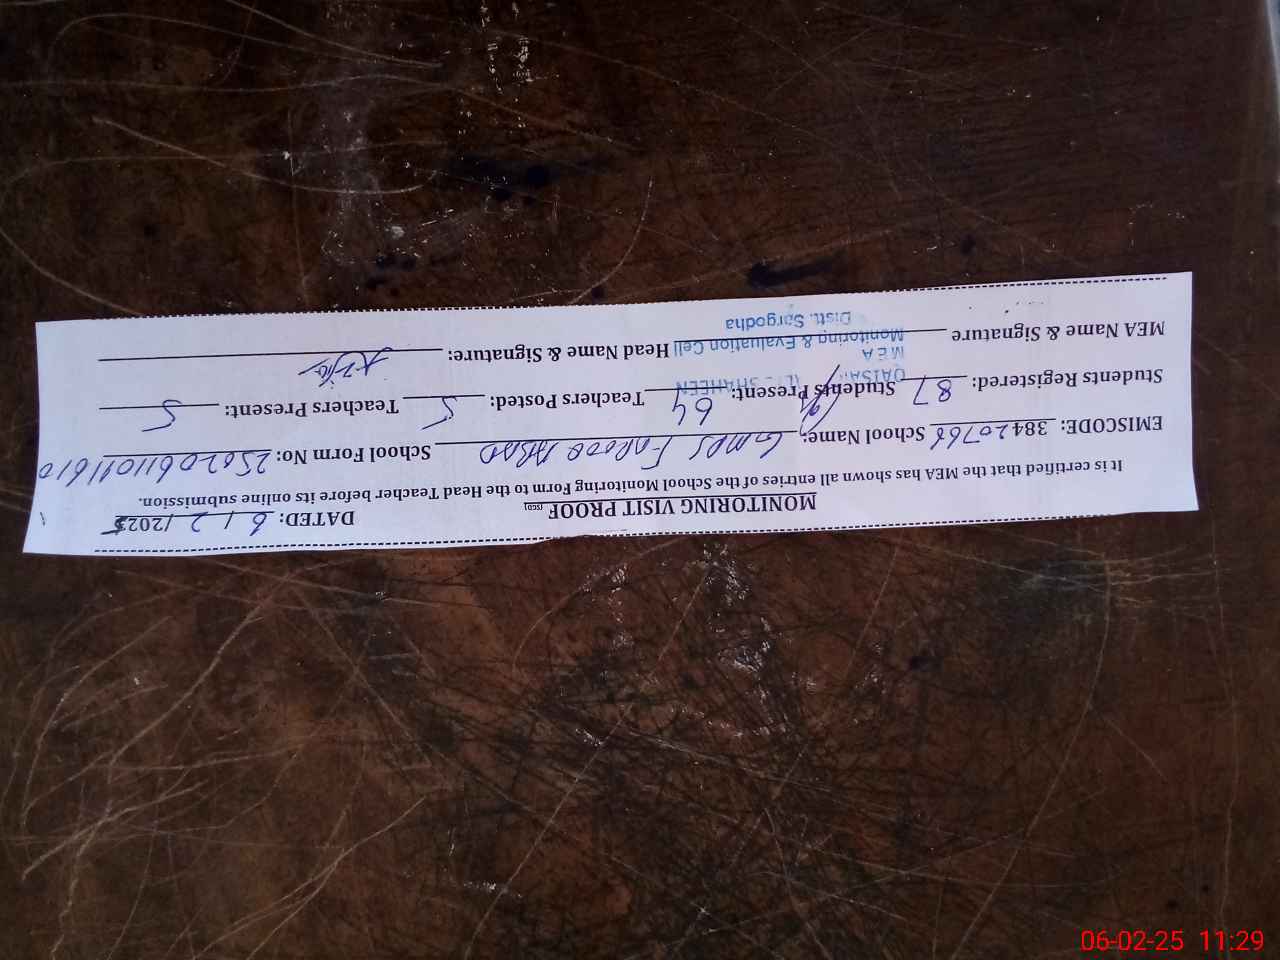 MONITORING VISIT PROOF [SCD] DATED: 6 / 2 / 2025
It is certified that the MEA has shown all entries of the School Monitoring Form to the Head Teacher before its online submission.
EMISCODE: 38420766 School Name: GMPS FAROOQ ABAD School Form No: 25020611011610
Students Registered: 87 Students Present: 64 Teachers Posted: 5 Teachers Present: 5
SHAHEEN
MEA
MEA Name & Signature Monitoring & Evaluation Cell Head Name & Signature:
Distt. Sargodha
06-02-25 11:29